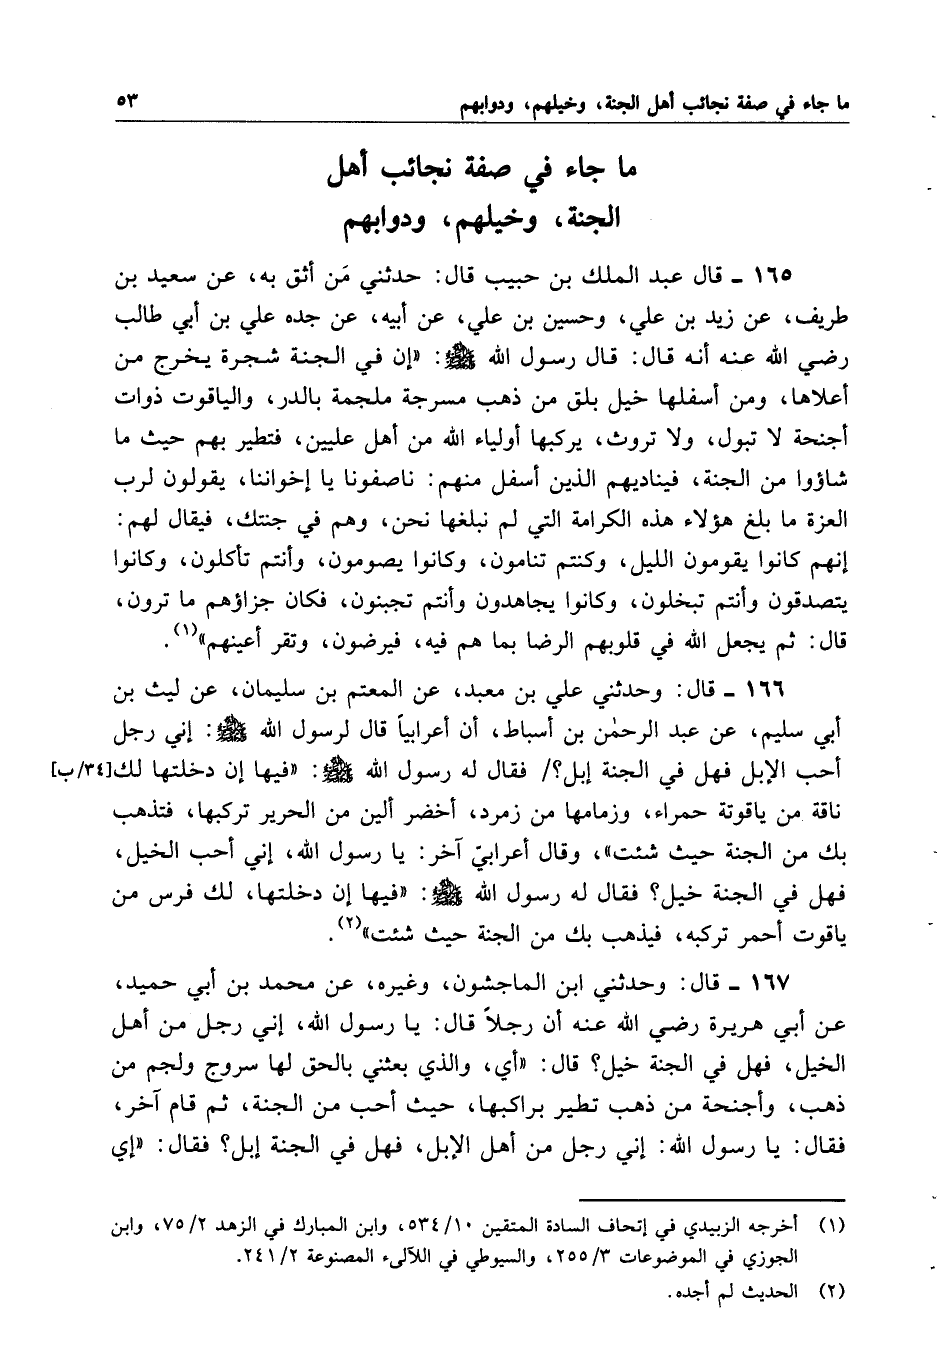 ما جاء في صفة نجائب أهل الجنة، وخيلهم، ودوابهم ٥٣
ما جاء في صفة نجائب أهل
الجنة، وخيلهم، ودوابهم
١٦٥ ـ قال عبد الملك بن حبيب قال: حدثني مَن أثق به، عن سعيد بن
طريف، عن زيد بن علي، وحسين بن علي، عن أبيه، عن جده علي بن أبي طالب
رضي الله عنه أنه قال: قال رسول الله ﷺ: «إن في الجنة شجرة يخرج من
أعلاها، ومن أسفلها خيل بلق من ذهب مسرجة ملجمة بالدر، والياقوت ذوات
أجنحة لا تبول، ولا تروث، يركبها أولياء الله من أهل عليين، فتطير بهم حيث ما
شاؤوا من الجنة، فيناديهم الذين أسفل منهم: ناصفونا يا إخواننا، يقولون لرب
العزة ما بلغ هؤلاء هذه الكرامة التي لم نبلغها نحن، وهم في جنتك، فيقال لهم:
إنهم كانوا يقومون الليل، وكنتم تنامون، وكانوا يصومون، وأنتم تأكلون، وكانوا
يتصدقون وأنتم تبخلون، وكانوا يجاهدون وأنتم تجبنون، فكان جزاؤهم ما ترون،
قال: ثم يجعل الله في قلوبهم الرضا بما هم فيه، فيرضون، وتقر أعينهم»(١).
١٦٦ ـ قال: وحدثني علي بن معبد، عن المعتم بن سليمان، عن ليث بن
أبي سليم، عن عبد الرحمٰن بن أسباط، أن أعرابياً قال لرسول الله ﷺ: إني رجل
أحب الإبل فهل في الجنة إبل؟/ فقال له رسول الله ﷺ: «فيها إن دخلتها لك[٣٤/ب]
ناقة من ياقوتة حمراء، وزمامها من زمرد، أخضر ألين من الحرير تركبها، فتذهب
بك من الجنة حيث شئت»، وقال أعرابيّ آخر: يا رسول الله، إني أحب الخيل،
فهل في الجنة خيل؟ فقال له رسول الله ﷺ: «فيها إن دخلتها، لك فرس من
ياقوت أحمر تركبه، فيذهب بك من الجنة حيث شئت»(٢).
١٦٧ ـ قال: وحدثني ابن الماجشون، وغيره، عن محمد بن أبي حميد،
عن أبي هريرة رضي الله عنه أن رجلاً قال: يا رسول الله، إني رجل من أهل
الخيل، فهل في الجنة خيل؟ قال: «أي، والذي بعثني بالحق لها سروج ولجم من
ذهب، وأجنحة من ذهب تطير براكبها، حيث أحب من الجنة، ثم قام آخر،
فقال: يا رسول الله: إني رجل من أهل الإبل، فهل في الجنة إبل؟ فقال: «إي
(١) أخرجه الزبيدي في إتحاف السادة المتقين ١٠/ ٥٣٤، وابن المبارك في الزهد ٢/ ٧٥، وابن
الجوزي في الموضوعات ٣/ ٢٥٥، والسيوطي في اللآلىء المصنوعة ٢/ ٢٤١.
(٢) الحديث لم أجده.